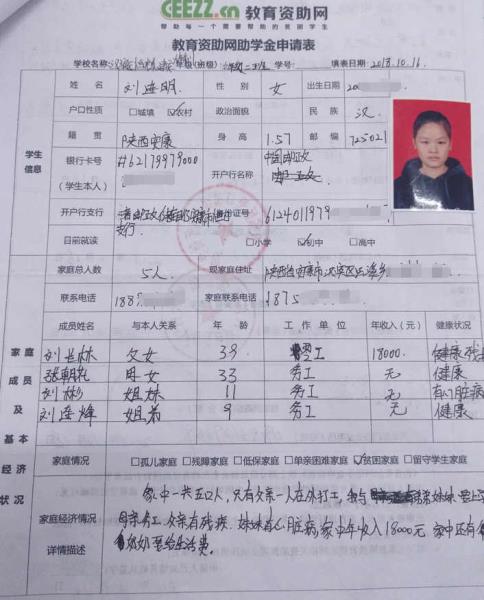 CEEZZ.cn 教育资助网
帮助每一个需要帮助的贫困学生
教育资助网助学金申请表
学校名称: 年级(班级): 二班 学号: 填表日期: 2018.10.16.
姓名 刘连明 性别 女 出生日期 20
户口性质 □城镇 ☑农村 政治面貌 民族 汉
籍贯 陕西安康 身高 1.57 邮编 725021
学生信息
银行卡号(学生本人) #62179979000 开户行名称 中国邮政
开户行支行 支行 身份证号 6124011979
目前就读 □小学 ☑初中 □高中
家庭总人数 5人 现家庭住址 陕西省安康市汉滨区
联系电话 188 家庭联系电话 1875
成员姓名 与本人关系 年龄 工作单位 年收入(元) 健康状况
林 父女 39 务工 18000 健康
张朝花 母女 33 务工 无 健康
刘彬 姐妹 11 务工 无 有心脏病
刘连烽 姐弟 9 务工 无 健康
家庭成员及基本经济状况
家庭情况 □孤儿家庭 □残障家庭 □低保家庭 □单亲困难家庭 ☑贫困家庭 □留守学生家庭
家庭经济情况详情描述
家中一共五口人,只有父亲一人在外打工,
母亲务工,父亲有残疾,妹妹有心脏病,家中年收入18000元,家中还有
奶奶 生活费.